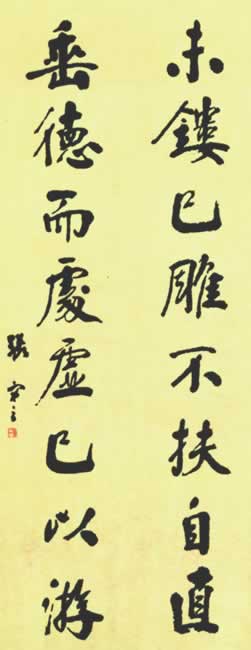 未鏤已雕不扶自直
垂德而處虛己以游
張